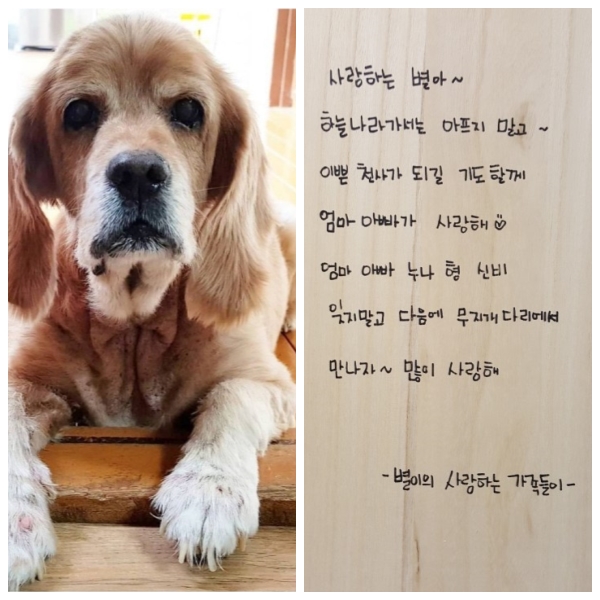 사랑하는 별아~
하늘나라가서는 아프지 말고 ~
이쁜 천사가 되길 기도할게
엄마 아빠가 사랑해
엄마 아빠 누나 형 신비
잊지말고 다음에 무지개다리에서
만나자~ 많이 사랑해
- 별이의 사랑하는 가족들이 -